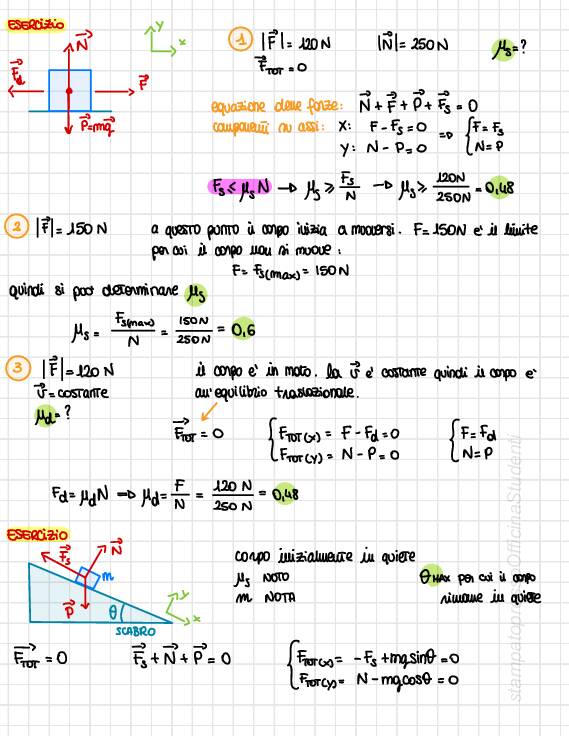 ESERCIZIO
① |F⃗| = 120N |N⃗| = 250N μs = ?
F⃗TOT = 0
y
x
N⃗
F⃗d
F⃗
P⃗=mg⃗
equazione delle forze: N⃗ + F⃗ + P⃗ + F⃗s = 0
componenti su assi: x: F - Fs = 0 => { F = Fs
y: N - P = 0 N = P
Fs ≤ μs N → μs ≥ Fs/N → μs ≥ 120N/250N = 0,48
② |F⃗| = 150N a questo punto il corpo inizia a muoversi. F = 150N e' il limite
per cui il corpo non si muove:
F = Fs(max) = 150N
quindi si può determinare μs
μs = Fs(max)/N = 150N/250N = 0,6
③ |F⃗| = 120 N il corpo e' in moto. La v⃗ e' costante quindi il corpo e'
v⃗ = costante all'equilibrio traslazionale.
μd = ?
F⃗TOT = 0 { FTOT(x) = F - Fd = 0 { F = Fd
FTOT(y) = N - P = 0 N = P
Fd = μd N → μd = F/N = 120 N/250 N = 0,48
ESERCIZIO
F⃗s
N⃗
m
P⃗
θ
y
x
SCABRO
corpo inizialmente in quiete
μs NOTO θMAX per cui il corpo
m NOTA rimane in quiete
F⃗TOT = 0 F⃗s + N⃗ + P⃗ = 0 { FTOT(x) = -Fs + mg sinθ = 0
FTOT(y) = N - mg cosθ = 0